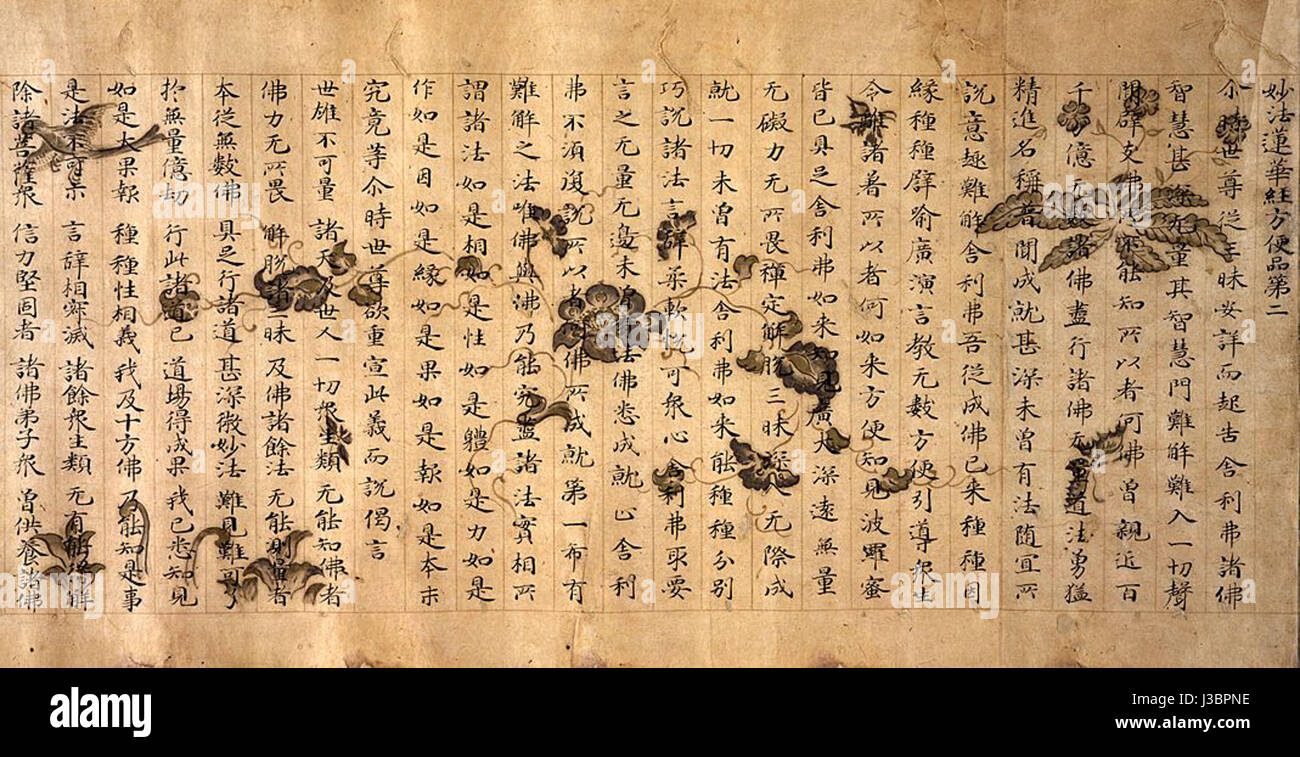 妙法蓮華經方便品第二
尒時世尊從三昧安詳而起告舍利弗諸佛
智慧甚深无量其智慧門難解難入一切聲
聞辟支佛所不能知所以者何佛曾親近百
千万億无數諸佛盡行諸佛无量道法勇猛
精進名稱普聞成就甚深未曾有法随宜所
說意趣難解舍利弗吾從成佛已来種種因
緣種種譬喻廣演言教无數方便引導眾生
令離諸著所以者何如来方便知見波羅蜜
皆已具足舍利弗如来知見廣大深遠無量
无礙力无所畏禪定解脫三昧深入无際成
就一切未曾有法舍利弗如来能種種分別
巧說諸法言辭柔軟悅可眾心舍利弗取要
言之无量无邊未曾有法佛悉成就止舍利
弗不須復說所以者何佛所成就第一希有
難解之法唯佛與佛乃能究盡諸法實相所
謂諸法如是相如是性如是體如是力如是
作如是因如是緣如是果如是報如是本末
究竟等尒時世尊欲重宣此義而說偈言
世雄不可量 諸天及世人 一切眾生類 无能知佛者
佛力无所畏 解脫諸三昧 及佛諸餘法 无能測量者
本從無數佛 具足行諸道 甚深微妙法 難見難可了
於無量億劫 行此諸道已 道場得成果 我已悉知見
如是大果報 種種性相義 我及十方佛 乃能知是事
是法不可示 言辭相寂滅 諸餘眾生類 无有能得解
除諸菩薩眾 信力堅固者 諸佛弟子眾 曾供養諸佛
alamy
alamy stock photo
J3BPNE
www.alamy.com